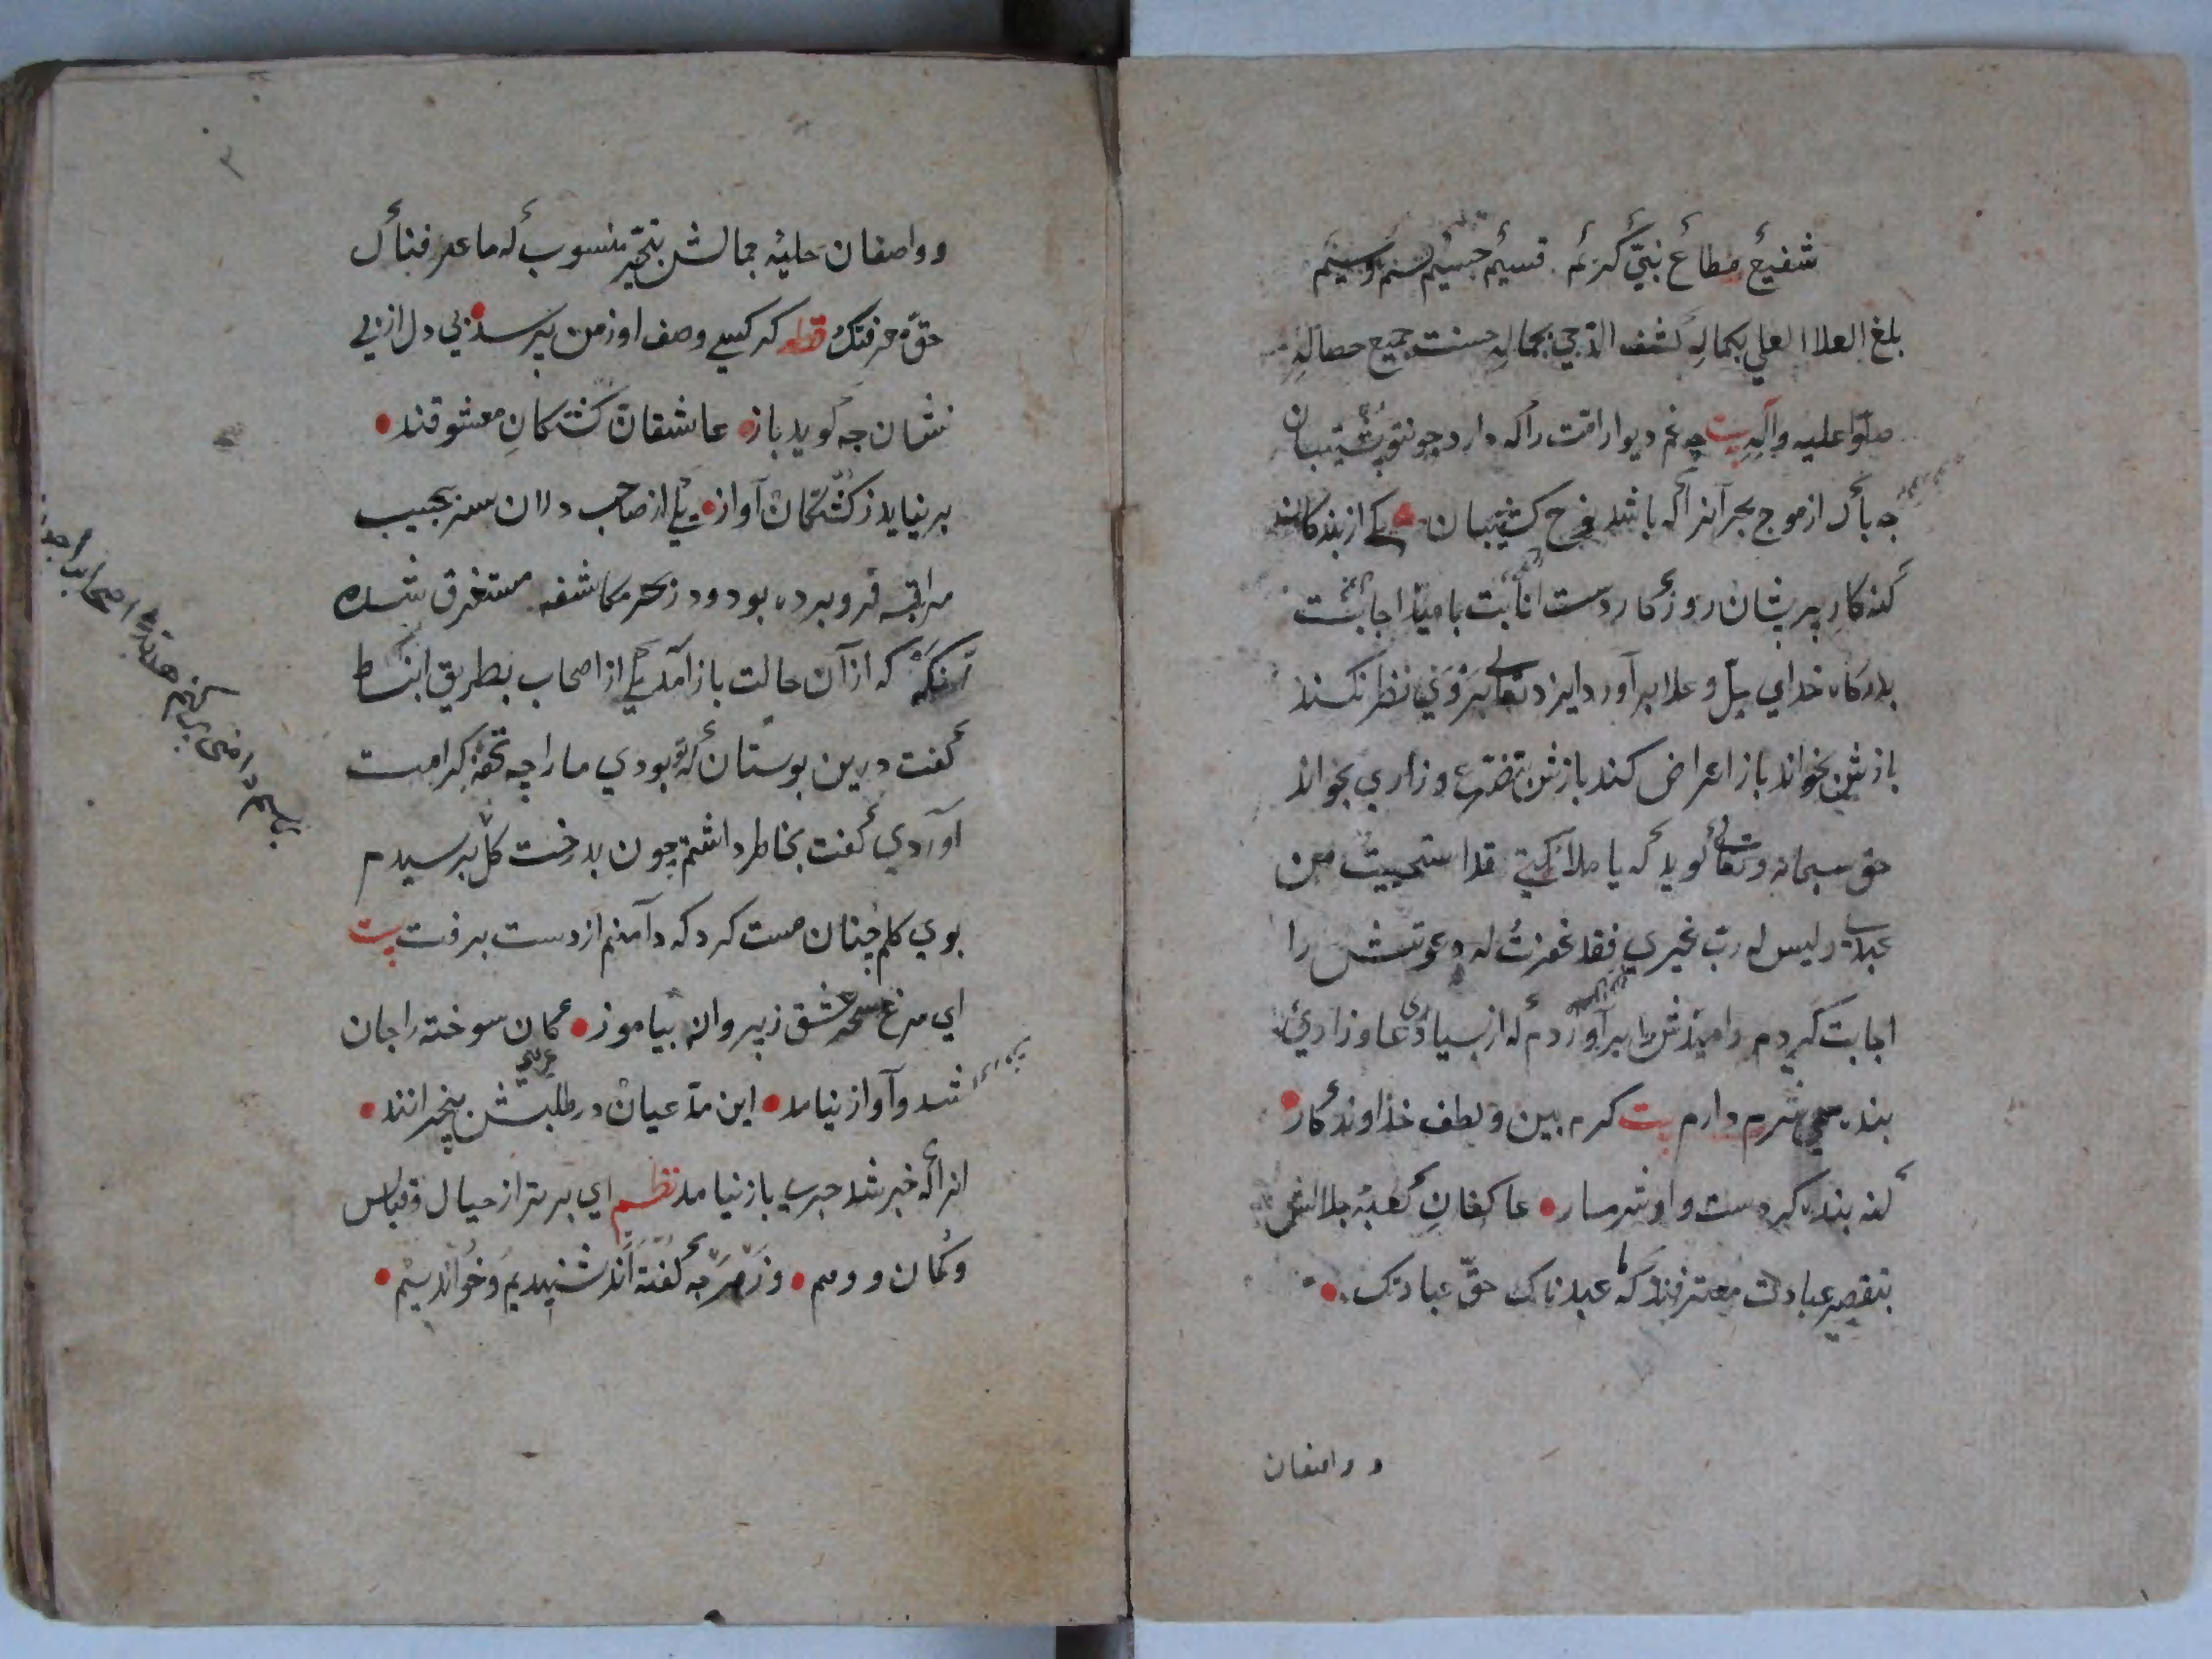 شفیع مطاع نبیّ کریم قسیم جسیم نسیم وسیم
بلغ العلا العلي بکماله کشف الدّجي بجماله حسنت جمیع خصاله
صلّوا علیه وآله بیت چه غم دیوار امّت را که دارد چون تو پشتیبان
چه باک از موج بحر آنرا که باشد نوح کشتیبان یکي از بندکان
کنه کار پریشان روزکار دست انابت بامید اجابت
بدرکاه خداي جلّ و علا برآورد ایزد تعالی بروي نظر نکند
بازش بخواند باز اعراض کند بازش بتضرّع و زاري بخواند
حق سبحانه وتعالی کوید که یا ملائکتي قد استحییت من
عبدي ولیس له ربّ غیري فقد غفرت له دعوتش را
اجابت کردم و امیدش را برآوردم که از بسیاری دعا و زاريء
بنده همي شرم دارم بیت کرم بین و لطف خداوندکار
کنه بنده کردست و او شرمسار عاکفان کعبهٔ جلالش
بتقصیر عبادت معترفند که ما عبدناک حقّ عبادتک
وواصفان
وواصفان حلیهٔ جمالش بتحیّر منسوب که ما عرفناک
حقّ معرفتک قطعه کر کسي وصف او ز من پرسد بي دل از بي
نشان چه کوید باز عاشقان کشتکان معشوقند
برنیاید ز کشتکان آواز یکي از صاحب دلان سر بجیب
مراقبه فرو برده بود و در بحر مکاشفه مستغرق شده
آنکه که از آن حالت باز آمد یکي از اصحاب بطریق انبساط
کفت درین بوستان که تو بودي ما را چه تحفهٔ کرامت
آوردي کفت بخاطر داشتم چون بدرخت کل برسیدم
بوي کلم چنان مست کرد که دامنم از دست برفت بیت
اي مرغ سحر عشق ز پروانه بیاموز کان سوخته را جان
شد و آواز نیامد این مدّعیان در طلبش بیخبرانند
انرا که خبر شد خبري باز نیامد نظم اي برتر از خیال و قیاس
وکمان و وهم وز هرچه کفته اند شنیدیم و خواندیم